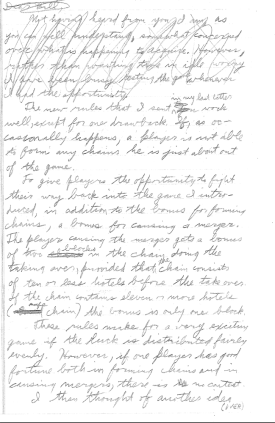 Dear Bill,
Not having heard from you, I am, as
you can well understand, somewhat concerned
over what is happening to Acquire. However,
rather than wasting time in idle worry
I have been busy testing the game whenever
I had the opportunity.
The new rules that I sent in my last letter work
well, except for one drawback. If, as oc-
casionally happens, a player is not able
to form any chains he is just about out
of the game.
To give players the opportunity to fight
their way back into the game I intro-
duced, in addition to the bonus for forming
chains, a bonus for causing a merger.
The player causing the merger gets a bonus
of two blocks in the chain doing the
taking over, provided that the chain consists
of ten or less hotels before the take over.
If the chain contains eleven or more hotels
(safe chain) the bonus is only one block.
These rules make for a very exciting
game if the luck is distributed fairly
evenly. However, if one player has good
fortune both in forming chains and in
causing mergers, there is no contest.
I then thought of another idea
(OVER)